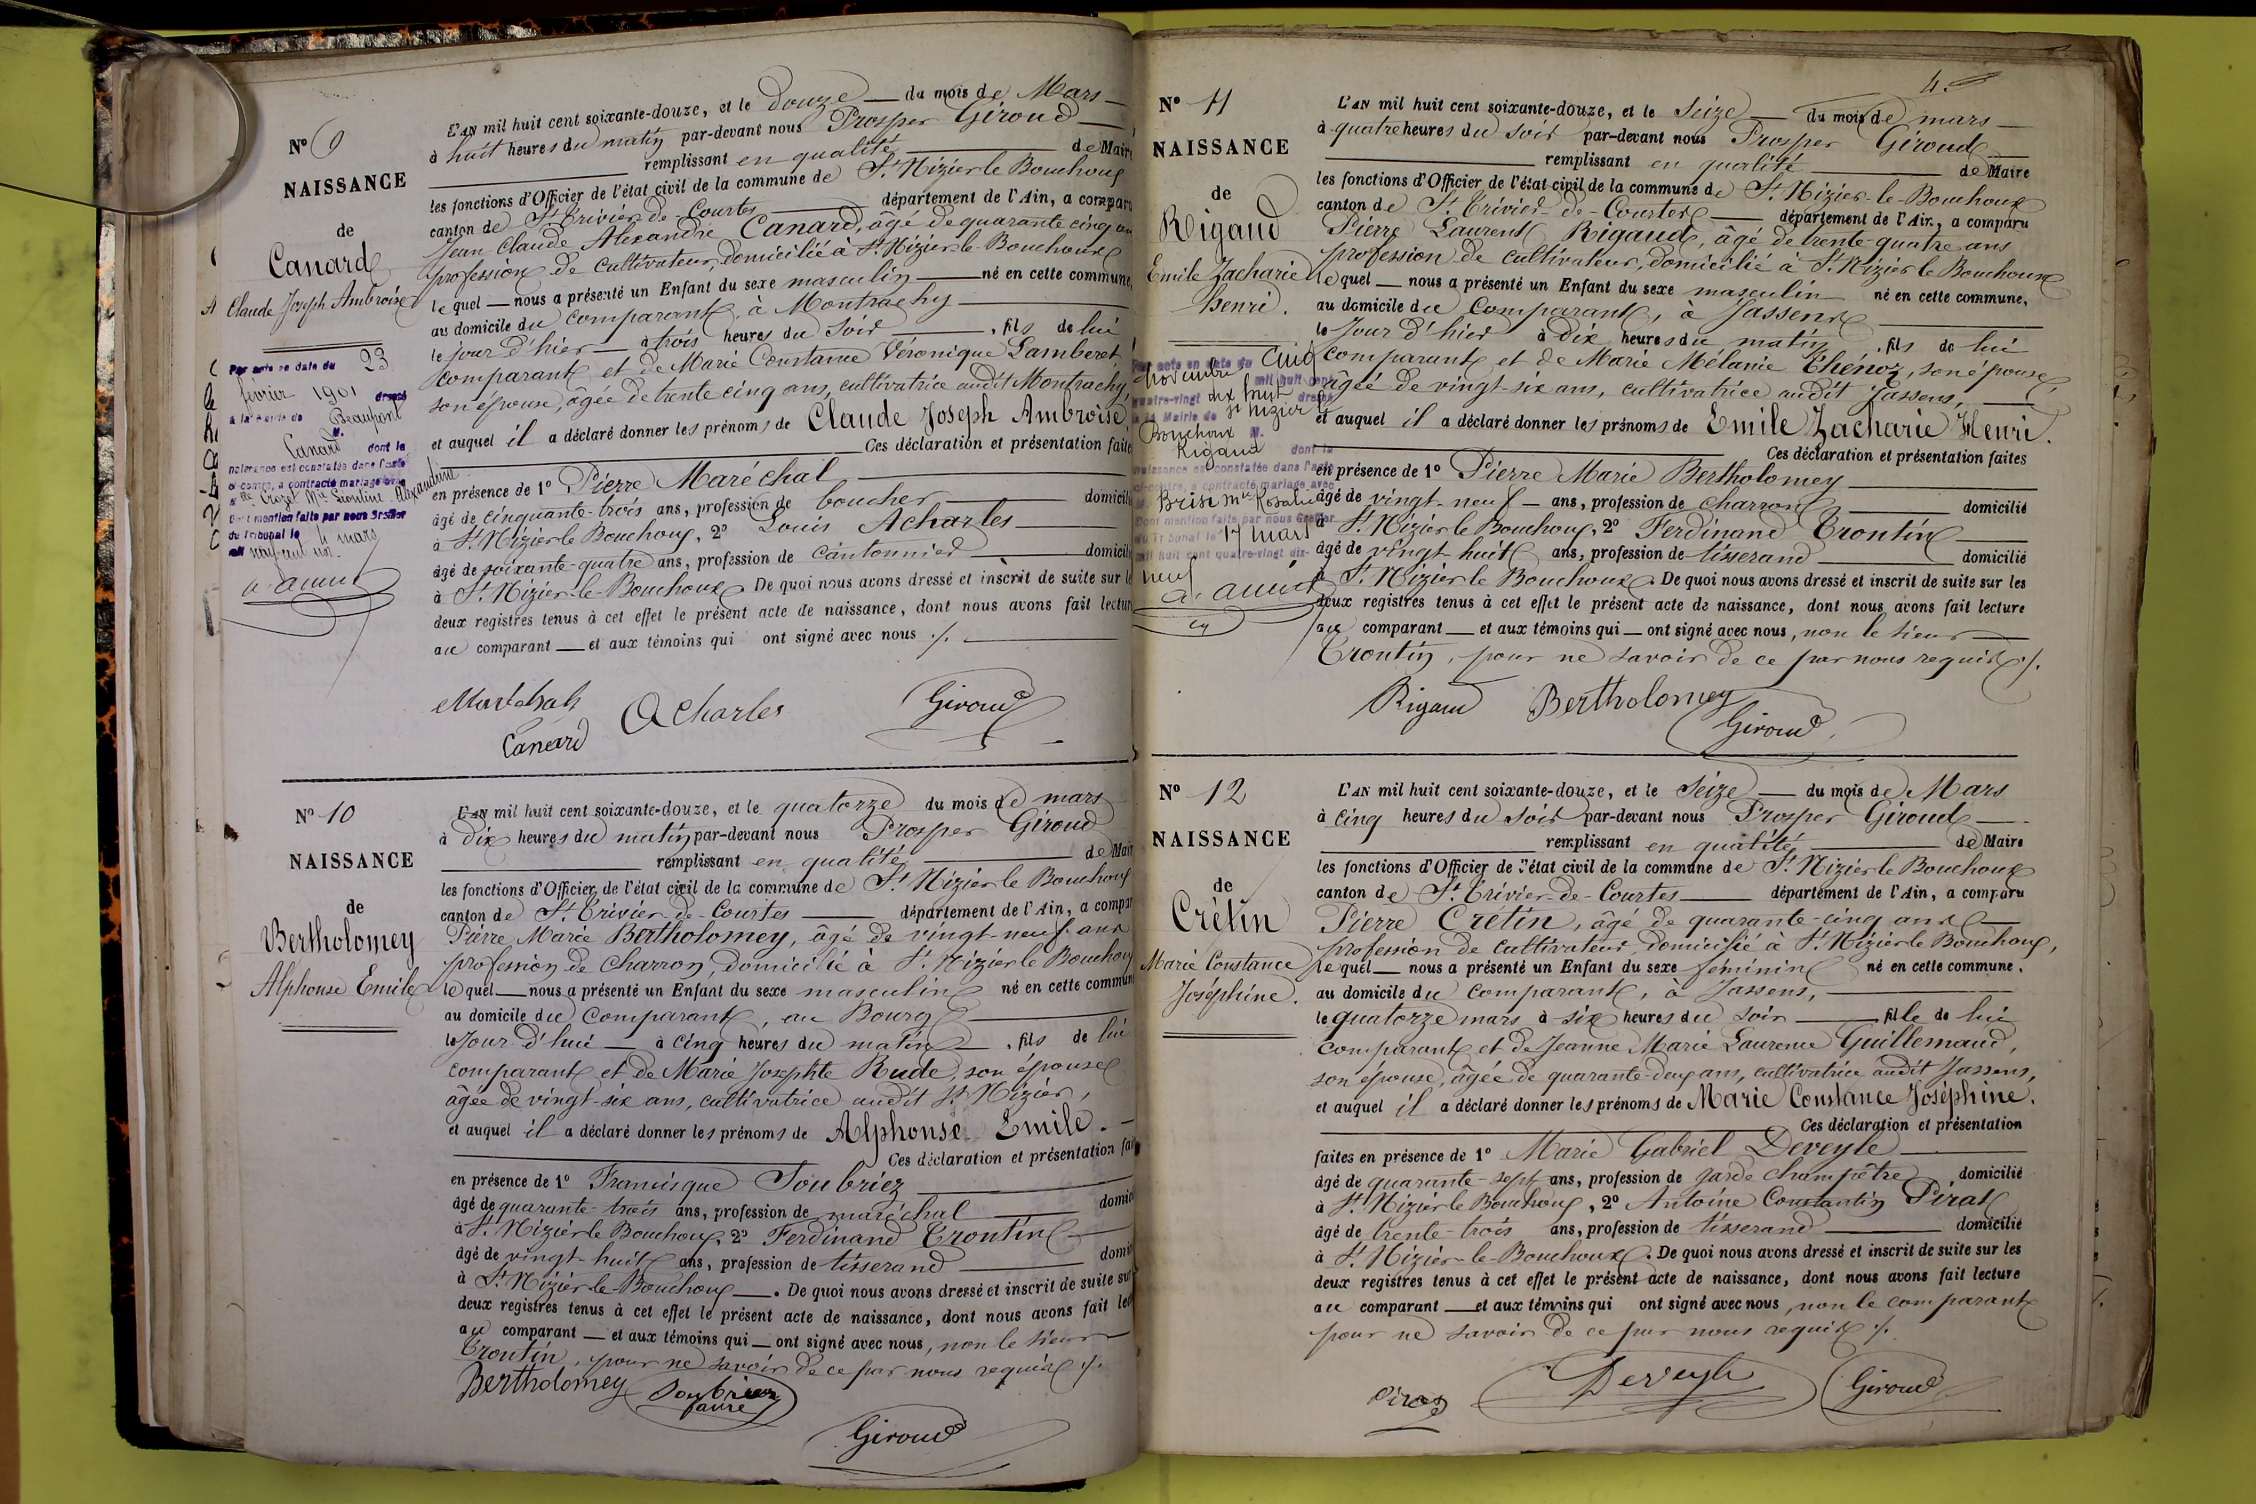 Nº 9
NAISSANCE
de
Canard
Claude Joseph Ambroise
Par acte en date du 23
février 1901 dressé
à la Mairie de Beaufort
M.
Canard dont la
naissance est constatée dans l'acte
ci-contre, a contracté mariage avec
de Crozet Mie Léontine Alexandrine
Dont mention faite par nous Greffier
du Tribunal le 4 mars
mil neuf cent un
L'AN mil huit cent soixante-douze, et le douze — du mois de Mars —
à huit heures du matin par-devant nous Prosper Giroud
remplissant en qualité de Maire
les fonctions d'Officier de l'état civil de la commune de St. Nizier le Bouchoux
canton de St Trivier de Courtes département de l'Ain, a comparu
Jean Claude Alexandre Canard, âgé de quarante cinq ans
profession de cultivateur, domicilié à St. Nizier le Bouchoux
lequel — nous a présenté un Enfant du sexe masculin — né en cette commune,
au domicile du comparant, à Montrachy
le jour d'hier — à trois heures du soir , fils de lui
comparant et de Marie Constance Véronique Lamberet
son épouse, âgée de trente cinq ans, cultivatrice audit Montrachy,
et auquel il a déclaré donner les prénoms de Claude Joseph Ambroise
Ces déclaration et présentation faites
en présence de 1º Pierre Maréchal
âgé de cinquante-trois ans, profession de boucher domicilié
à St. Nizier le Bouchoux, 2º Louis Acharles
âgé de soixante-quatre ans, profession de cantonnier domicilié
à St. Nizier-le-Bouchoux. De quoi nous avons dressé et inscrit de suite sur les
deux registres tenus à cet effet le présent acte de naissance, dont nous avons fait lecture
au comparant — et aux témoins qui ont signé avec nous ./.
Maréchal
Canard
Acharles
Giroud
Nº 10
NAISSANCE
de
Bertholomey
Alphonse Emile
L'AN mil huit cent soixante-douze, et le quatorze du mois de mars
à dix heures du matin par-devant nous Prosper Giroud
remplissant en qualité de Maire
les fonctions d'Officier de l'état civil de la commune de St. Nizier le Bouchoux
canton de St. Trivier-de-Courtes département de l'Ain, a comparu
Pierre Marie Bertholomey, âgé de vingt-neuf ans
profession de charron, domicilié à St. Nizier le Bouchoux
lequel — nous a présenté un Enfant du sexe masculin né en cette commune
au domicile du comparant, au Bourg
le Jour d'hui — à cinq heures du matin , fils de lui
comparant et de Marie Josephte Rude, son épouse
âgée de vingt-six ans, cultivatrice audit St. Nizier,
et auquel il a déclaré donner les prénoms de Alphonse Emile. —
Ces déclaration et présentation faites
en présence de 1º Francisque Soubriez
âgé de quarante-trois ans, profession de maréchal domicilié
à St. Nizier le Bouchoux, 2º Ferdinand Trontin
âgé de vingt-huit ans, profession de tisserand domicilié
à St. Nizier-le-Bouchoux —. De quoi nous avons dressé et inscrit de suite sur
deux registres tenus à cet effet le présent acte de naissance, dont nous avons fait lecture
au comparant — et aux témoins qui — ont signé avec nous, non le sieur
Trontin, pour ne savoir de ce par nous requis ./.
Bertholomey
Soubriez
Giroud
4.
Nº 11
NAISSANCE
de
Rigaud
Emile Zacharie
henri.
Par acte en date du cinq
novembre mil huit cent
quatre-vingt dix huit dressé
à la Mairie de St Nizier le
Bouchoux M.
Rigaud dont la
naissance est constatée dans l'acte
ci-contre, a contracté mariage avec
M. Brise Mie Rosalie
Dont mention faite par nous Greffier
du Tribunal le 17 mars
mil huit cent quatre-vingt dix-
neuf
L'AN mil huit cent soixante-douze, et le Seize — du mois de mars —
à quatre heures du soir par-devant nous Prosper Giroud
remplissant en qualité de Maire
les fonctions d'Officier de l'état civil de la commune de St. Nizier-le-Bouchoux
canton de St. Trivier-de-Courtes département de l'Ain, a comparu
Pierre Laurent Rigaud, âgé de trente-quatre ans
profession de cultivateur, domicilié à St. Nizier le Bouchoux
lequel — nous a présenté un Enfant du sexe masculin né en cette commune,
au domicile du comparant, à Jassens
le jour d'hier à dix heures du matin , fils de lui
comparant et de Marie Mélanie Thénoz, son épouse,
âgée de vingt-six ans, cultivatrice audit Jassens, —
et auquel il a déclaré donner les prénoms de Emile Zacharie Henri.
Ces déclaration et présentation faites
en présence de 1º Pierre Marie Bertholomey
âgé de vingt-neuf — ans, profession de charron domicilié
à St. Nizier le Bouchoux, 2º Ferdinand Trontin
âgé de vingt-huit ans, profession de tisserand domicilié
à St. Nizier le Bouchoux. De quoi nous avons dressé et inscrit de suite sur les
deux registres tenus à cet effet le présent acte de naissance, dont nous avons fait lecture
au comparant — et aux témoins qui — ont signé avec nous, non le sieur
Trontin, pour ne savoir de ce par nous requis ./.
Rigaud
Bertholomey
Giroud
Nº 12
NAISSANCE
de
Crétin
Marie Constance
Joséphine.
L'AN mil huit cent soixante-douze, et le Seize — du mois de Mars
à cinq heures du soir par-devant nous Prosper Giroud
remplissant en qualité de Maire
les fonctions d'Officier de l'état civil de la commune de St. Nizier le Bouchoux
canton de St. Trivier-de-Courtes département de l'Ain, a comparu
Pierre Crétin, âgé de quarante-cinq ans
profession de cultivateur, domicilié à St. Nizier le Bouchoux,
lequel — nous a présenté un Enfant du sexe féminin né en cette commune.
au domicile du comparant, à Jassens,
le quatorze mars à six heures du soir , fille de lui
comparant et de Jeanne Marie Laurence Guillemaud,
son épouse, âgée de quarante-deux ans, cultivatrice audit Jassens,
et auquel il a déclaré donner les prénoms de Marie Constance Joséphine.
Ces déclaration et présentation
faites en présence de 1º Marie Gabriel Deveyle
âgé de quarante-sept ans, profession de garde champêtre domicilié
à St. Nizier le Bouchoux, 2º Antoine Constantin Pirat
âgé de trente-trois ans, profession de tisserand domicilié
à St. Nizier-le-Bouchoux. De quoi nous avons dressé et inscrit de suite sur les
deux registres tenus à cet effet le présent acte de naissance, dont nous avons fait lecture
au comparant — et aux témoins qui ont signé avec nous, non le comparant
pour ne savoir de ce par nous requis ./.
Pirat
Deveyle
Giroud